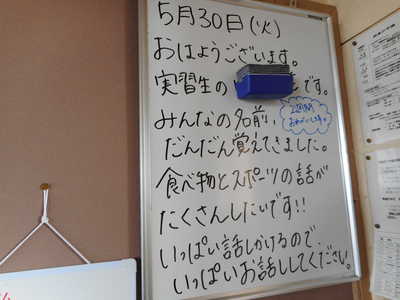 5月30日(火)
おはようございます。
実習生の です。
みんなの名前、
2週間
おねがいします。
だんだん覚えてきました。
食べ物とスポーツの話が
たくさんしたいです!!
いっぱい話しかけるので、
いっぱいお話ししてください。